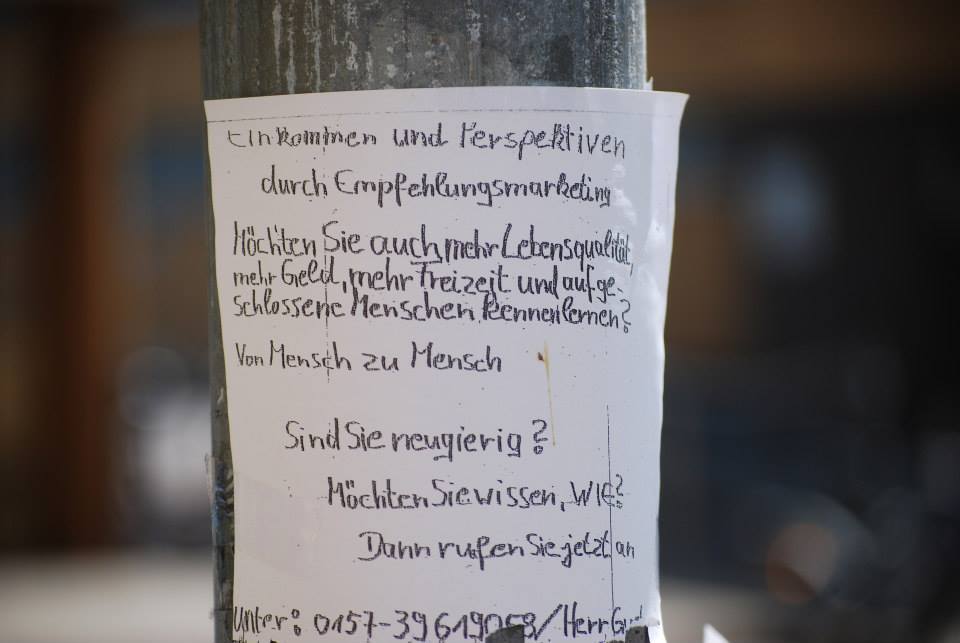 Einkommen und Perspektiven
durch Empfehlungsmarketing
Möchten Sie auch mehr Lebensqualität,
mehr Geld, mehr Freizeit und aufge-
schlossene Menschen kennenlernen?
Von Mensch zu Mensch
Sind Sie neugierig?
Möchten Sie wissen, WIE?
Dann rufen Sie jetzt an
unter: 0157-39619058/Herr